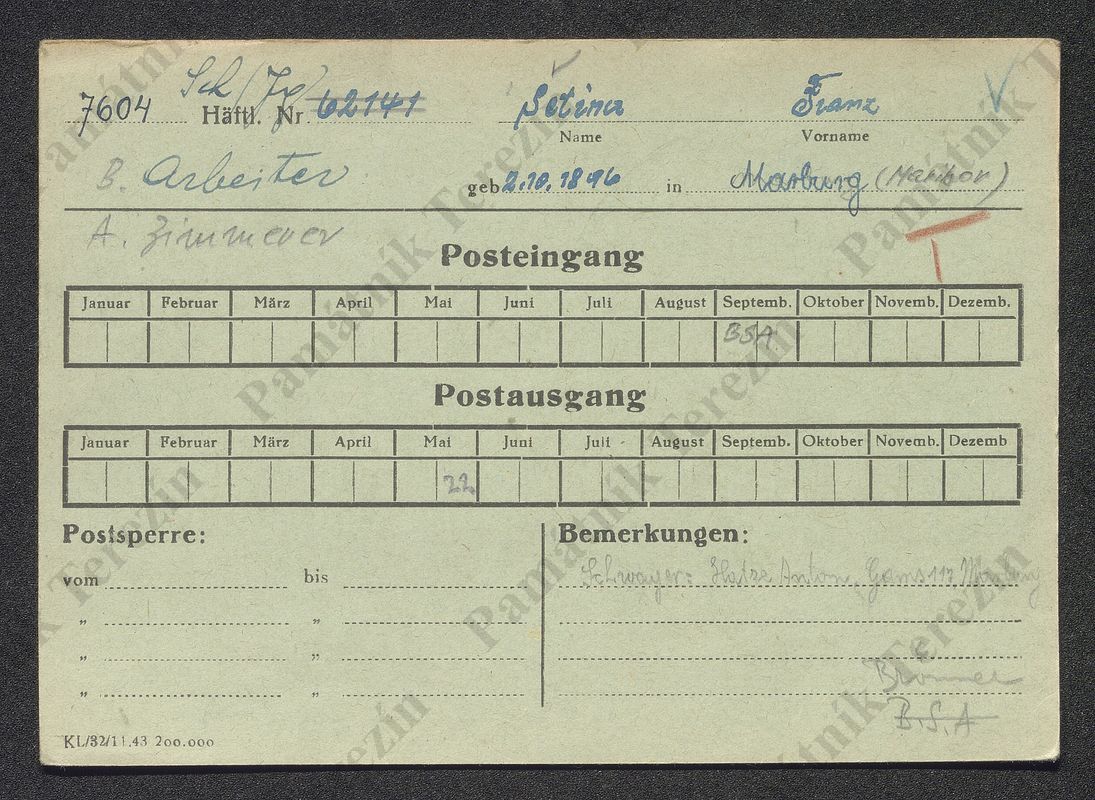 Sch/Jg/
7604 Häftl. Nr. 62141 Setina Franz
Name Vorname
B. Arbeiter geb. 2.10.1896 in Marburg (Maribor)
A. Zimmerer
T
Posteingang
Januar Februar März April Mai Juni Juli August Septemb. Oktober Novemb. Dezemb.
BSA
Postausgang
Januar Februar März April Mai Juni Juli August Septemb. Oktober Novemb. Dezemb
22
Postsperre: Bemerkungen:
vom bis
Schwager: Anton, Gams 117 Marburg
„ „
„ „
„ „
B.S.A
KL/32/11.43 200.000
Památník Terezín